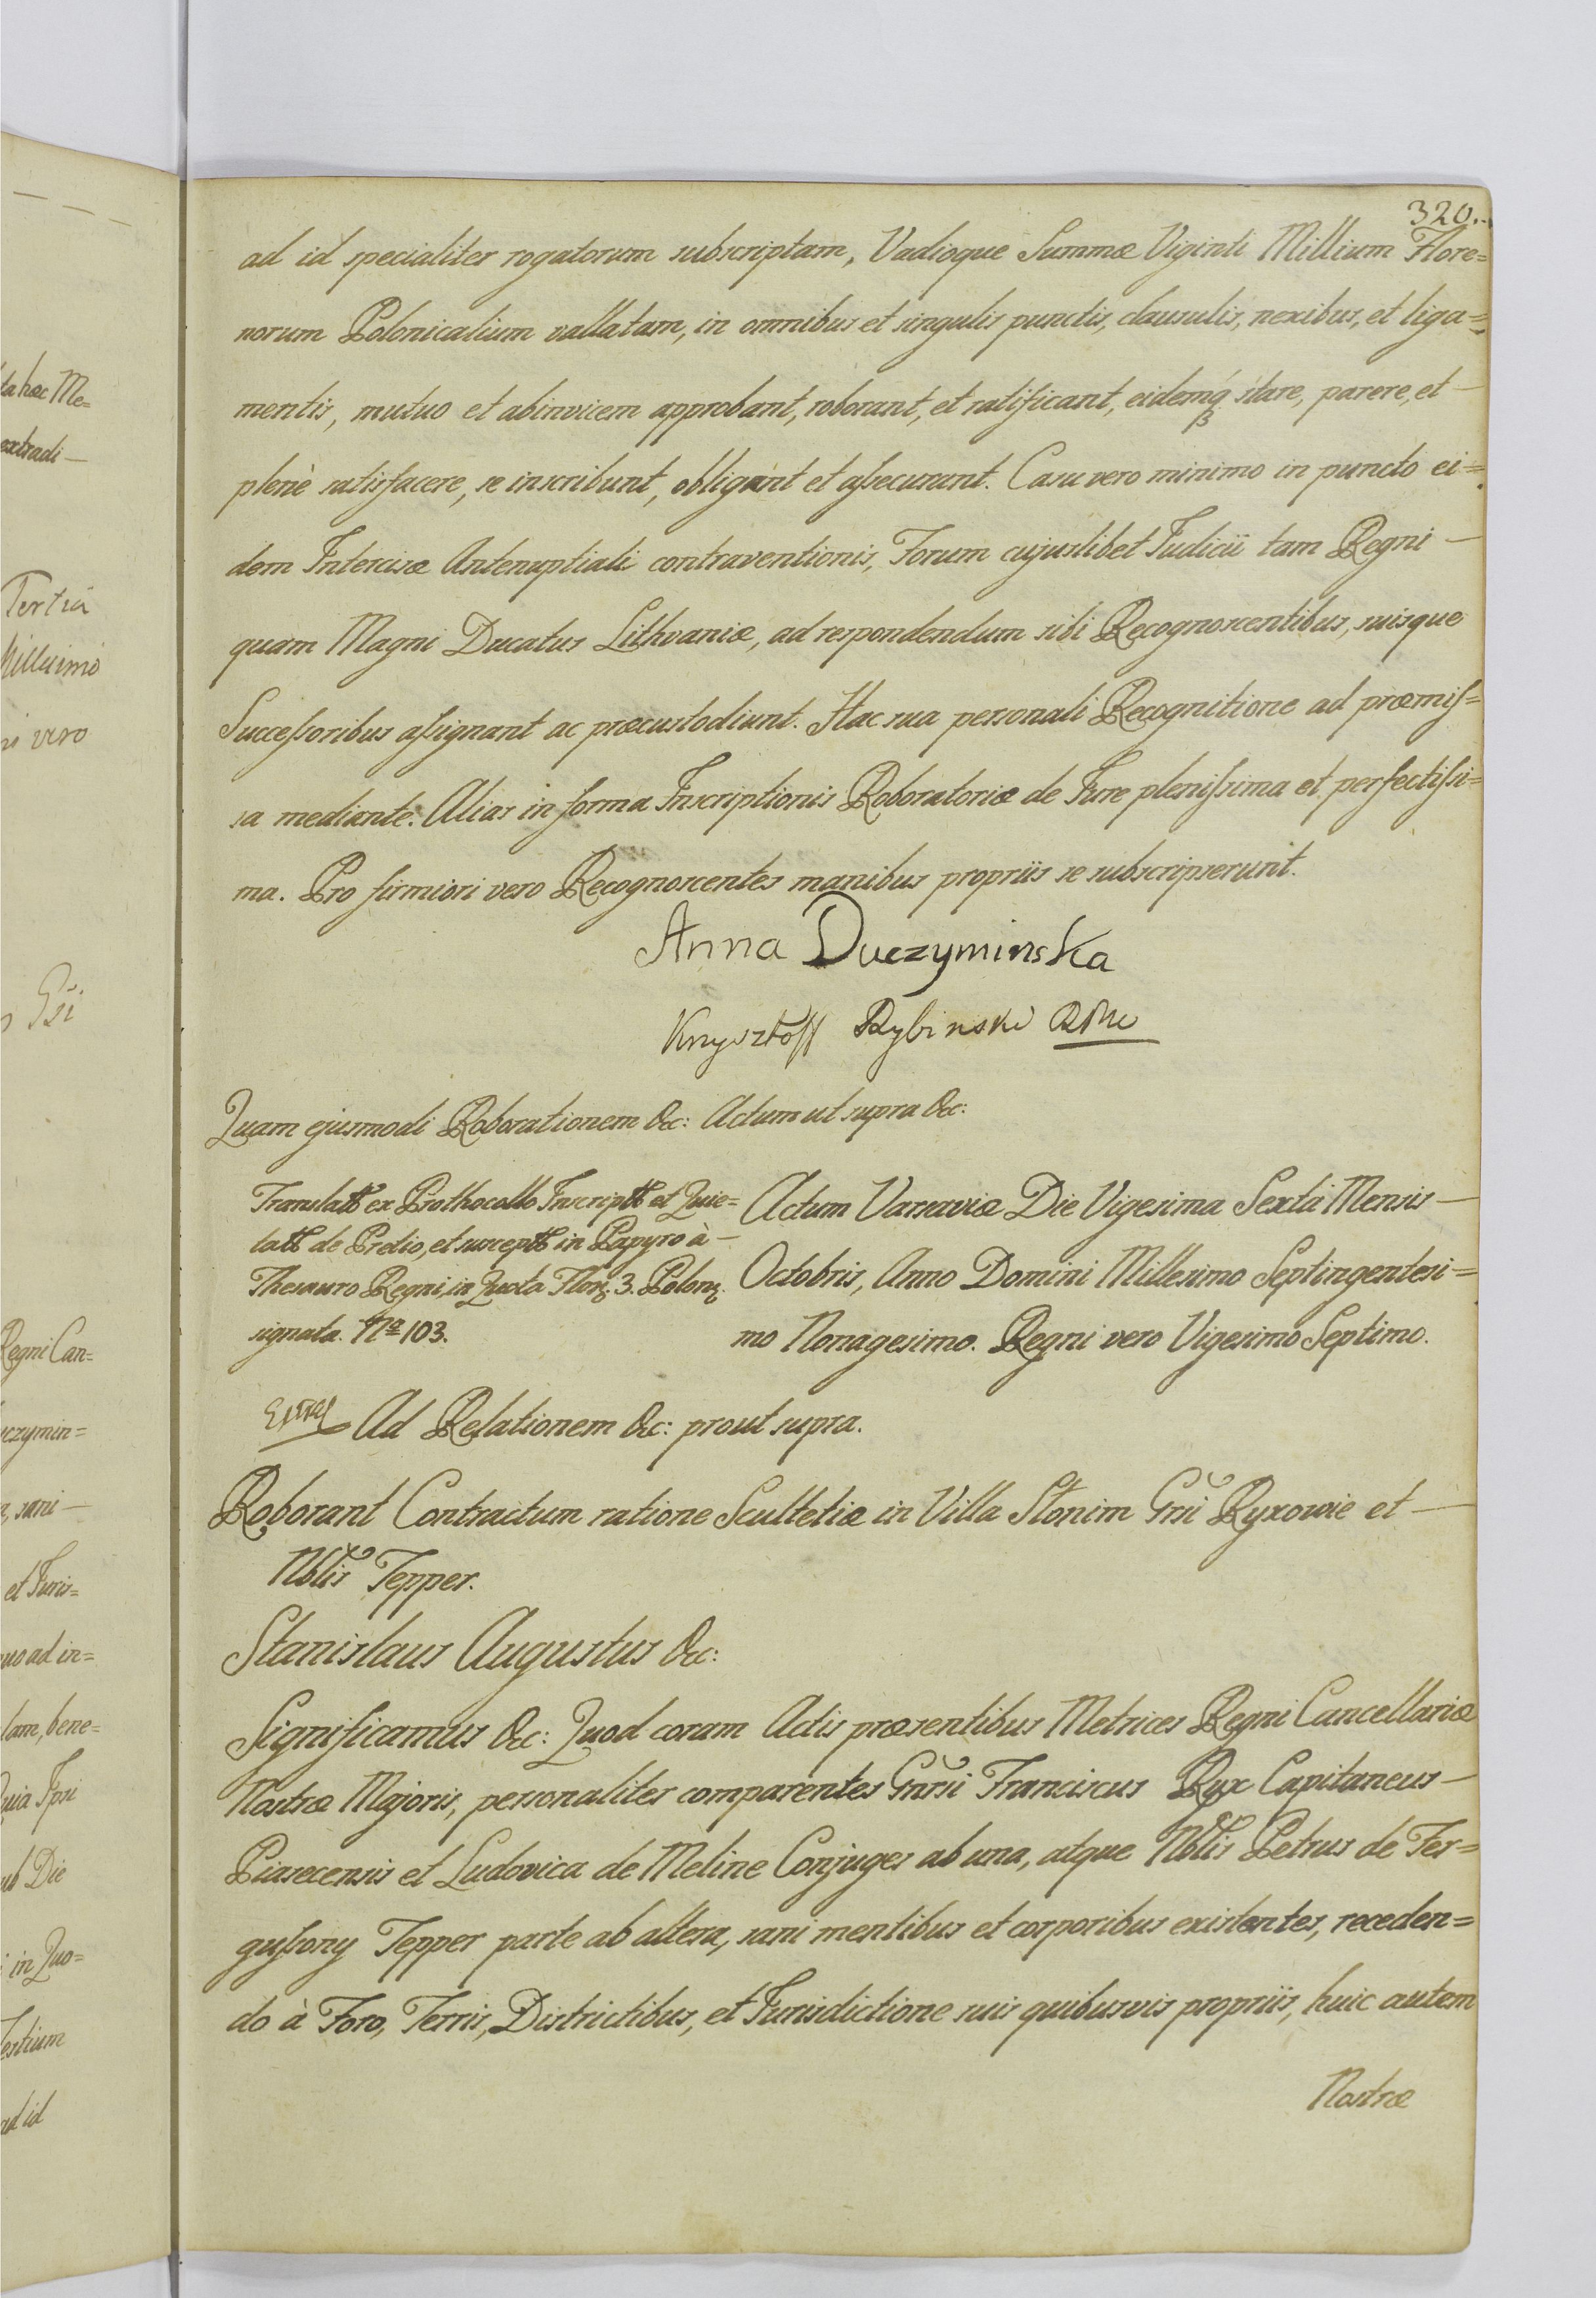 320.
ad id specialiter rogatorum subscriptam, Vadioque Summæ Viginti Millium Flore=
norum Polonicalium vallatam, in omnibus et singulis punctis, clausulis, nexibus, et liga=
mentis, mutuo et abinvicem approbant, roborant, et ratificant, eidemq́ stare, parere, et —
plenè satisfacere, se inscribunt, obligant et aſsecurant. Casu vero minimo in puncto ei=
dem Intercisæ Antenuptiali contraventionis, Forum cujuslibet Judicii tam Regni —
quam Magni Ducatus Lithvaniæ, ad respondendum sibi Recognoscentibus, suisque
Succeſsoribus aſsignant ac præcustodiunt. Hac sua personali Recognitione ad præmiſ=
sa mediante. Alias in forma Inscriptionis Roboratoriæ de Jure pleniſsima et perfectiſsi=
ma. Pro firmiori vero Recognoscentes manibus propriis se subscripserunt.
Anna Duczyminska
Krzysztoff Rybinski
Quam ejusmodi Roborationem &c: Actum ut supra &c:
ex Prothocollo et Quie=
de Predio, et in Papyro à —
Thesauro Regni, in Quota 3.
signata. Nº 103.
Actum Varsaviæ Die Vigesima Sexta Mensis —
Octobris, Anno Domini Millesimo Septingentesi=
mo Nonagesimo. Regni vero Vigesimo Septimo.
Ad Relationem &c: prout supra.
Roborant Contractum ratione Scultetiæ in Villa Słonim Gñi Ryxowie et —
Nblis Tepper.
Stanislaus Augustus &c:
Significamus &c: Quod coram Actis præsentibus Metrices Regni Cancellariæ
Nostræ Majoris, personaliter comparentes Gnrsi Franciscus Ryx Capitaneus —
Piasecensis et Ludovica de Meline Conjuges ab una, atque Nblis Petrus de Fer=
guſsony Tepper parte ab altera, sani mentibus et corporibus existentes, receden=
do à Foro, Terris, Districtibus, et Jurisdictione suis quibusvis propriis, huic autem
Nostræ
ta hac Me=
extradi —
Tertia
vero
Regni Can=
czymin=
sani —
et Juris=
ad in=
lam, bene=
Ipsi
Die
in Quo=
ad id